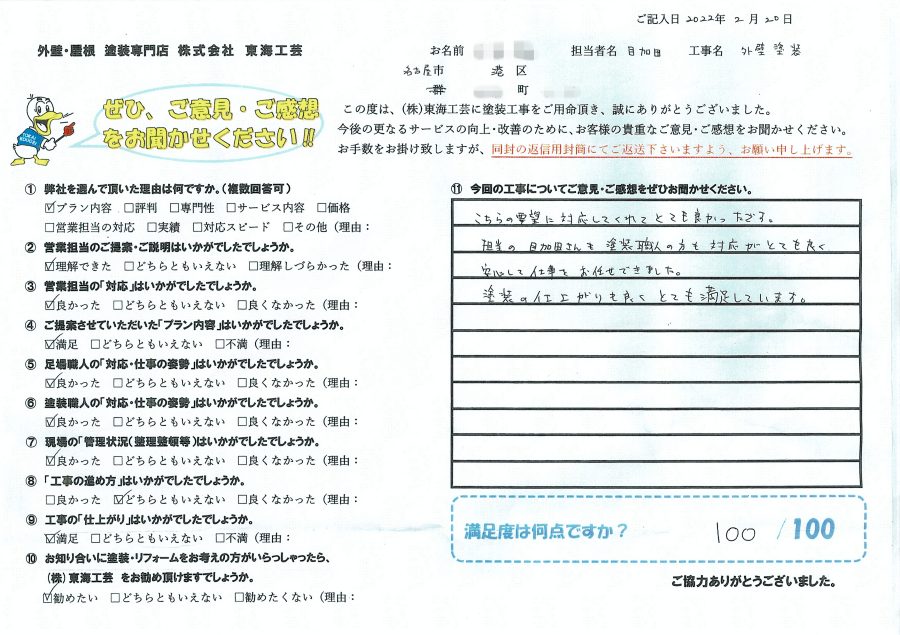 ご記入日 2022年 2月 20日
外壁・屋根 塗装専門店 株式会社 東海工芸
お名前 担当者名 日加田 工事名 外壁塗装
名古屋市 港 区
郡 町
ぜひ、ご意見・ご感想
をお聞かせください!!
この度は、(株)東海工芸に塗装工事をご用命頂き、誠にありがとうございました。
今後の更なるサービスの向上・改善のために、お客様の貴重なご意見・ご感想をお聞かせください。
お手数をお掛け致しますが、同封の返信用封筒にてご返送下さいますよう、お願い申し上げます。
① 弊社を選んで頂いた理由は何ですか。(複数回答可)
☑プラン内容 □評判 □専門性 □サービス内容 □価格
□営業担当の対応 □実績 □対応スピード □その他(理由:
② 営業担当のご提案・ご説明はいかがでしたでしょうか。
☑理解できた □どちらともいえない □理解しづらかった(理由:
③ 営業担当の「対応」はいかがでしたでしょうか。
☑良かった □どちらともいえない □良くなかった(理由:
④ ご提案させていただいた「プラン内容」はいかがでしたでしょうか。
☑満足 □どちらともいえない □不満(理由:
⑤ 足場職人の「対応・仕事の姿勢」はいかがでしたでしょうか。
☑良かった □どちらともいえない □良くなかった(理由:
⑥ 塗装職人の「対応・仕事の姿勢」はいかがでしたでしょうか。
☑良かった □どちらともいえない □良くなかった(理由:
⑦ 現場の「管理状況(整理整頓等)はいかがでしたでしょうか。
☑良かった □どちらともいえない □良くなかった(理由:
⑧ 「工事の進め方」はいかがでしたでしょうか。
□良かった ☑どちらともいえない □良くなかった(理由:
⑨ 工事の「仕上がり」はいかがでしたでしょうか。
☑満足 □どちらともいえない □不満(理由:
⑩ お知り合いに塗装・リフォームをお考えの方がいらっしゃったら、
(株)東海工芸 をお勧め頂けますでしょうか。
☑勧めたい □どちらともいえない □勧めたくない(理由:
⑪ 今回の工事についてご意見・ご感想をぜひお聞かせください。
こちらの要望に対応してくれてとても良かったです。
担当の日加田さんも塗装職人の方も対応がとても良く
安心して仕事をお任せできました。
塗装の仕上がりも良くとても満足しています。
満足度は何点ですか? 100 /100
ご協力ありがとうございました。